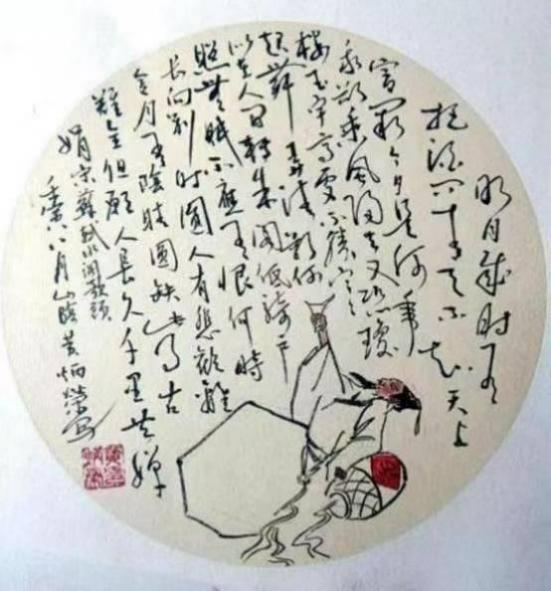 明月几时有
把酒问青天不知天上
宫阙今夕是何年
我欲乘风归去又恐琼
楼玉宇高处不胜寒
起舞弄清影何
似在人间转朱阁低绮户
照無眠不应有恨何時
长向别时圆人有悲歡離
合月有陰晴圆缺此事古
難全但願人長久千里共婵
娟宋蘇軾水调歌頭
壬寅八月黄炳榮写